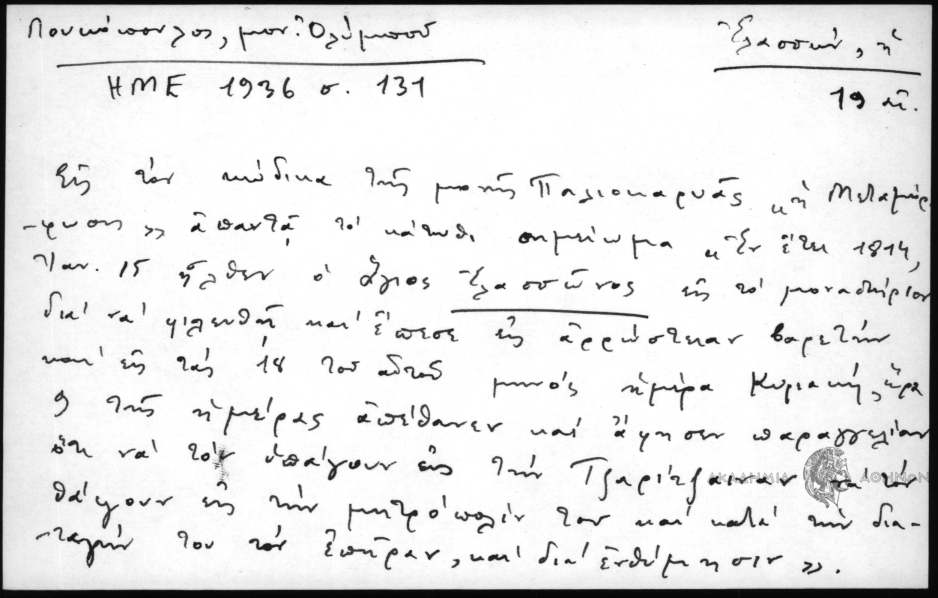 Πουκόπουλος, μον. Ὀλύμπου
Ἐλασσών, ἡ
ΗΜΕ 1936 σ. 131
19 αἰ.
Εἰς τὸν κώδικα τῆς μονῆς Παλιοκαρυᾶς «ἡ Μεταμόρ-
-φωσις» ἀπαντᾷ τὸ κάτωθι σημείωμα «Ἐν ἔτει 1814,
Ἰαν. 15 ἦλθεν ὁ ἅγιος Ἐλασσῶνος εἰς τὸ μοναστήριον
διὰ νὰ φιλευθῇ καὶ ἔπεσε εἰς ἀρρώστειαν βαρετὴν
καὶ εἰς τὰς 18 τοῦ αὐτοῦ μηνὸς ἡμέρα Κυριακή, ὥρα
9 τῆς ἡμέρας ἀπέθανεν καὶ ἄφησεν παραγγελίαν
ὅτι νὰ τὸν ὑπάγουν εἰς τὴν Τζαρίτζαιναν νὰ τὸν
θάψουν εἰς τὴν μητρόπολίν του καὶ κατὰ τὴν δια-
-ταγήν του τὸν ἐπῆραν, καὶ διὰ ἐνθύμησιν».
ΑΚΑΔΗΜΙΑ ΑΘΗΝΩΝ